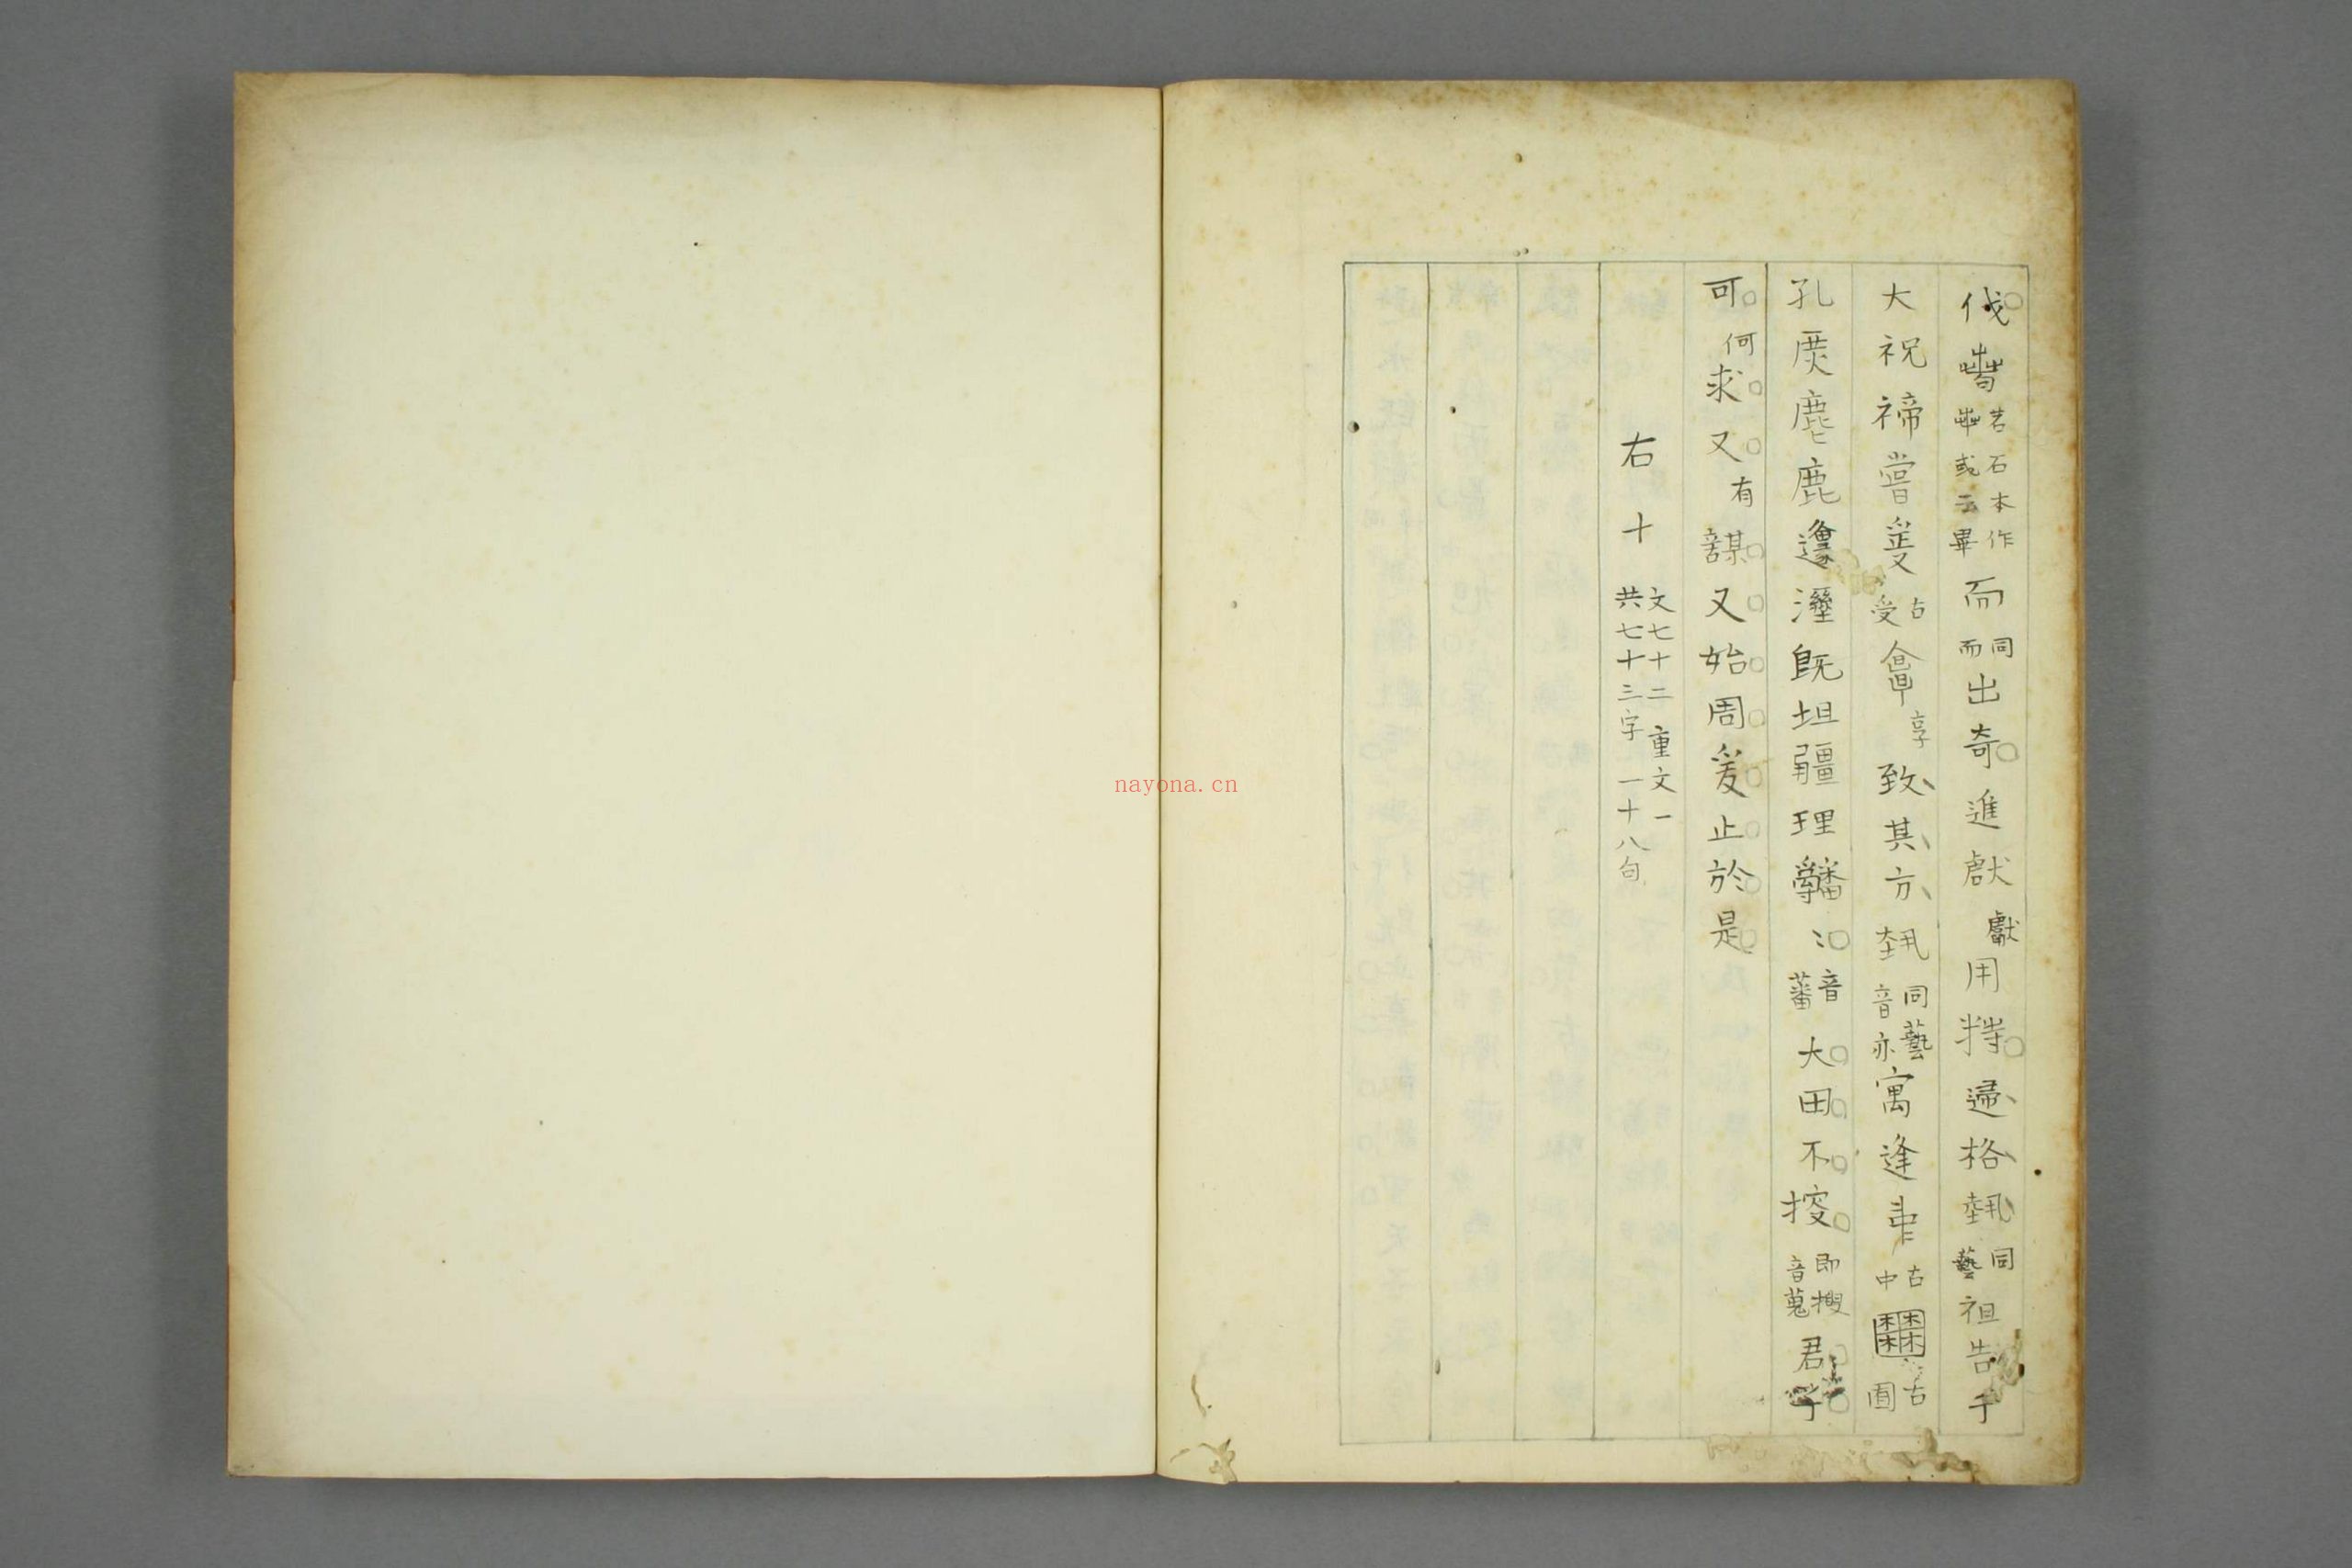 伐若石本作或云畢而同而出奇進獻獻用特逯格埶同藝祖告于
大祝禘嘗受古受享致其方埶同藝音亦寓逢中古中古囿
孔庶麀鹿邍溼既坦疆理〻音蕃大田不搜即搜音蒐君子
可何求又有謀又始周爰止於是
右十 文七十二 重文一
共七十三字 一十八句
nayona.cn